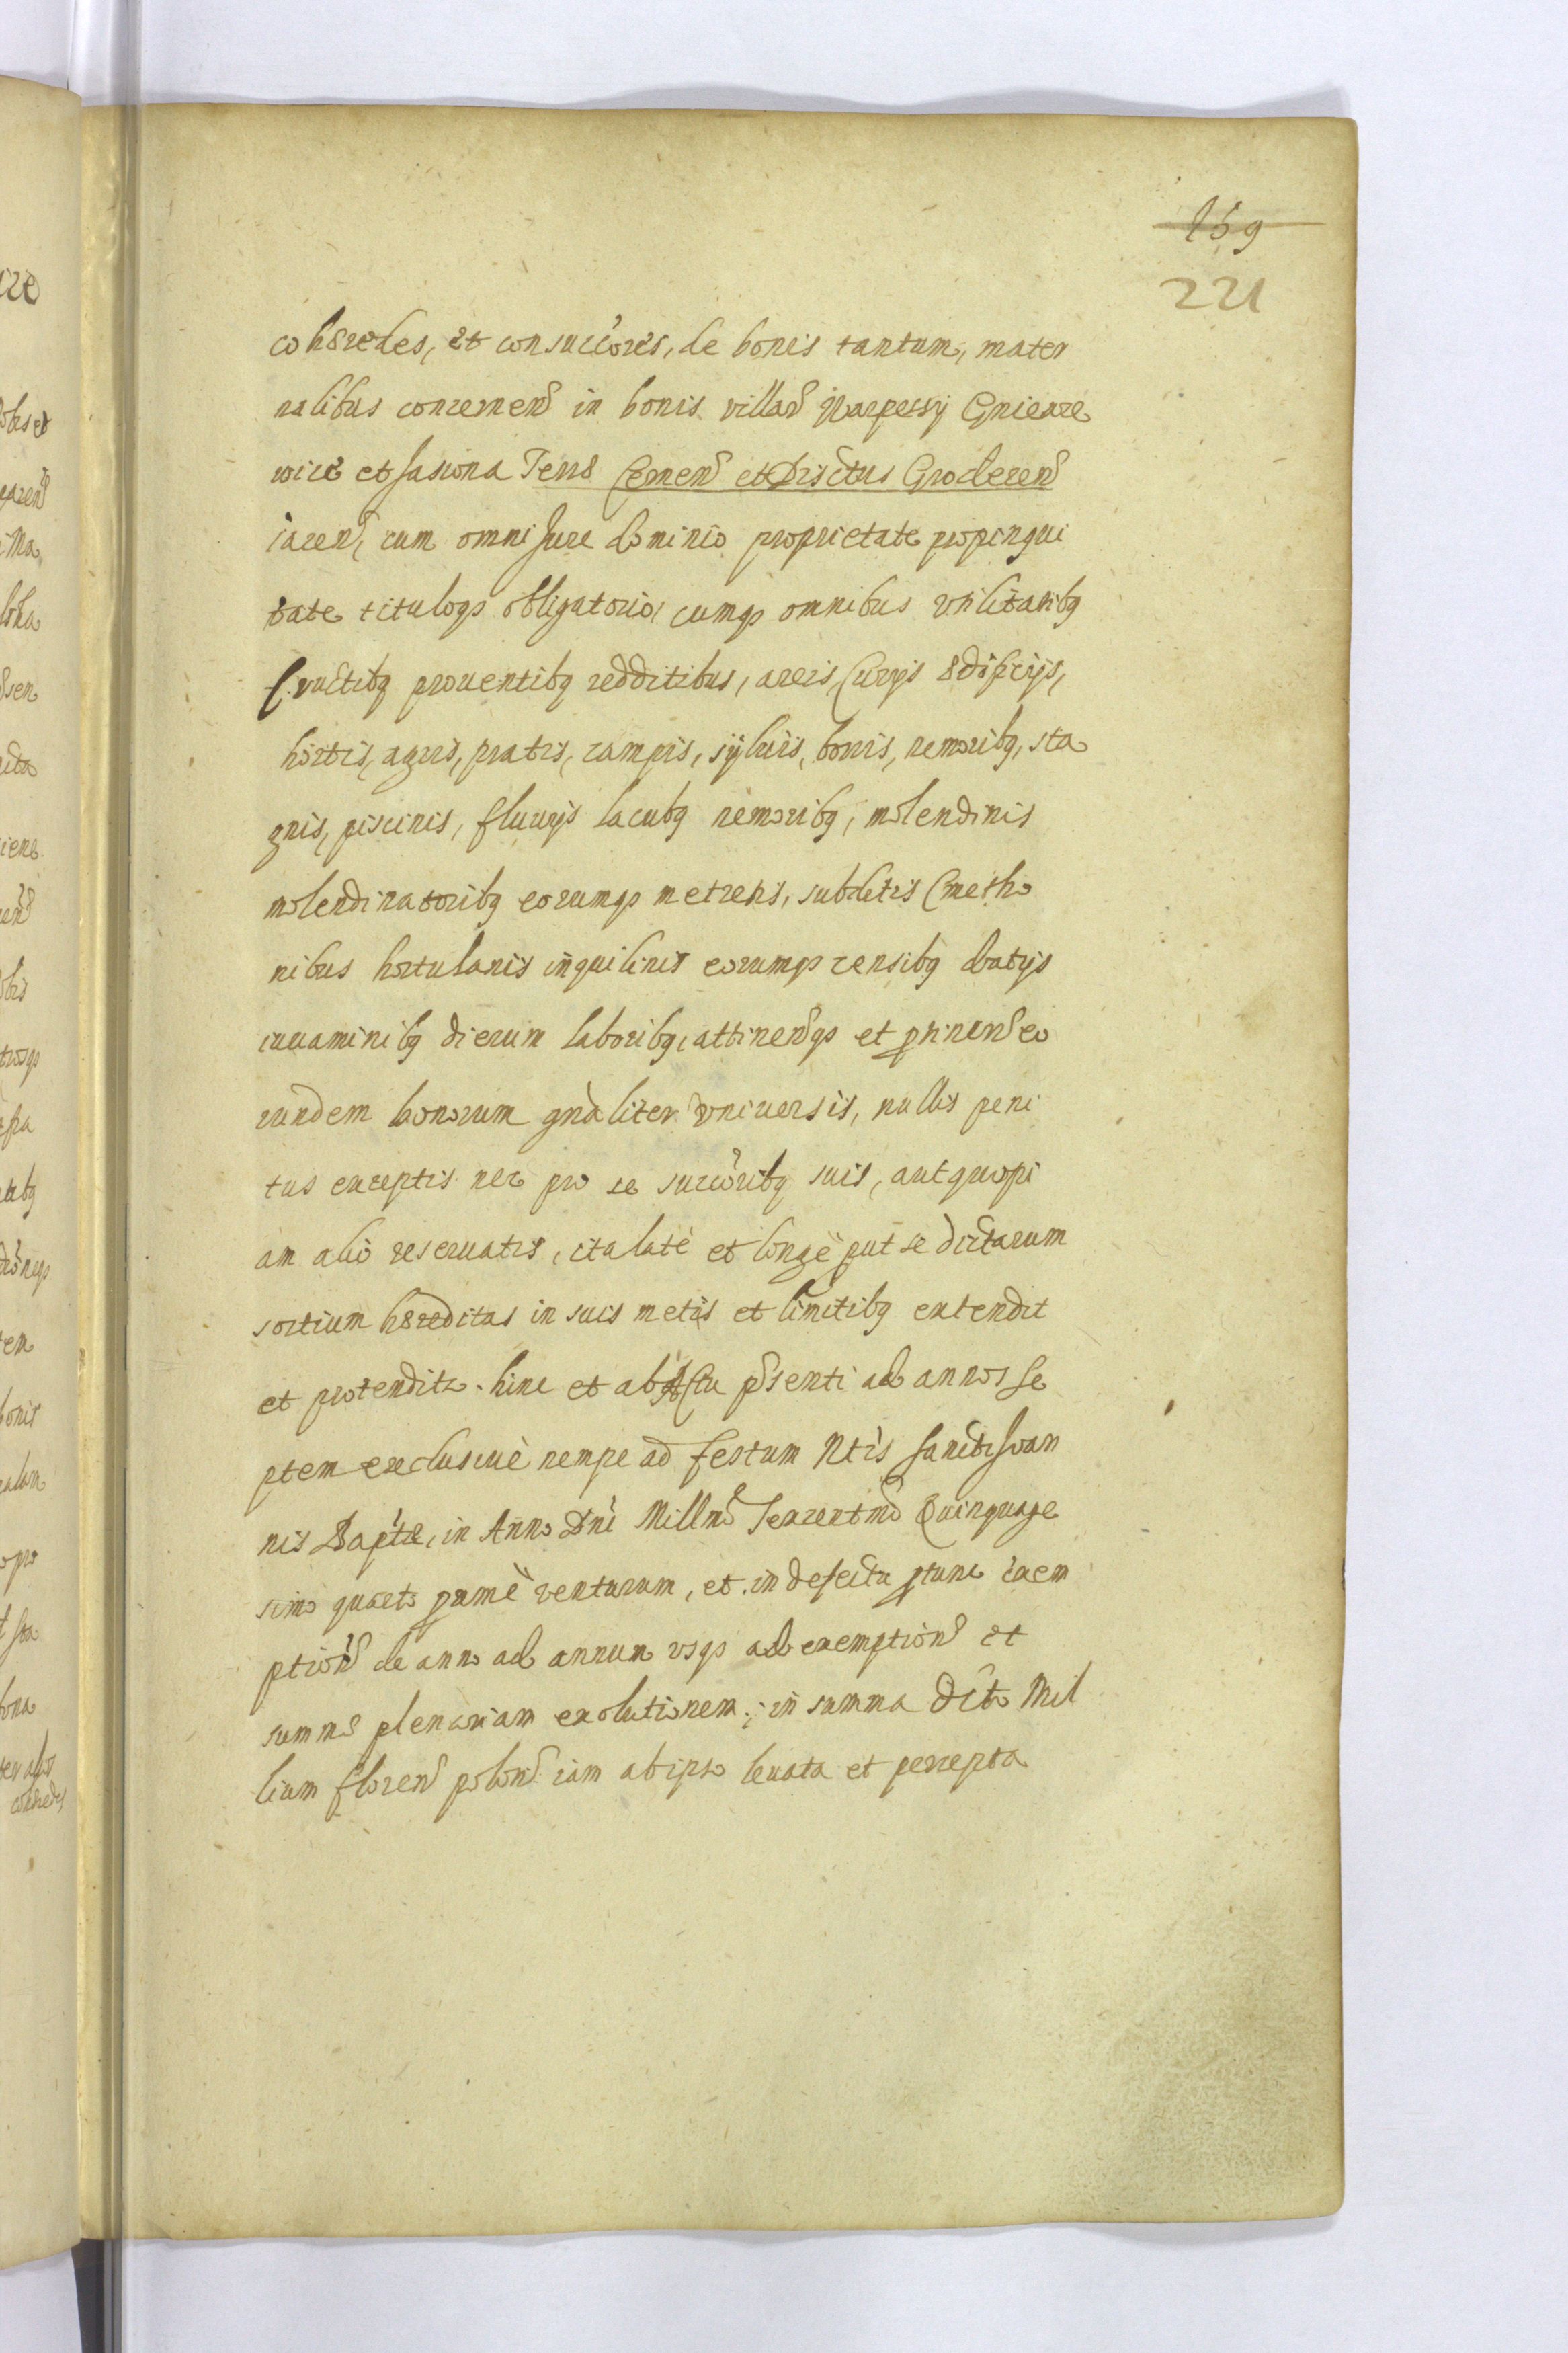 159
221
cohæredes, et consuccores, de bonis tantum, mater
nalibus concernen in bonis villar Karpessy Gnieze
wice et Sasiona Terræ Cernen et Drictus Grodecen
iacen, cum omni Jure dominio proprietate propinqui
tate tituloqз obligatorio, cumqз omnibus vtilitatibq
fructibq prouentibq redditibus, areis, Curijs ædificijs,
hortis, agris, pratis, campis, syluis, borris, nemoribq, sta
gnis, piscinis, fluuijs lacubq nemoribq, molendinis
molendinatoribq eorumqз metretis, subditis Cmetho
nibus hortulanis inquilinis eorumqз censibq datijs
iuuaminibq dierum laboribq, attinenqз et ptinen eo
rundem bonorum gnaliter vniuersis, nullis peni
tus exceptis nec pro se succoribq suis, aut quopi
am alio reseruatis, ita latè et longè put se dictarum
sortium hæreditas in suis metis et limitibq extendit
et protendit. hinc et ab Actu psenti ad annos se
ptem exclusiuè nempe ad festum Ntis Sancti Joan
nis Baptæ, in Anno Dni Millmo Sexcentmo Quinquage
simo quarto pximè venturum, et in defectu ptunc exem
ption de anno ad annum vsqз ad exemption et
summæ plenariam exolutionem, in summa Dicto Mil
lium floren polon iam ab ipso leuata et percepta